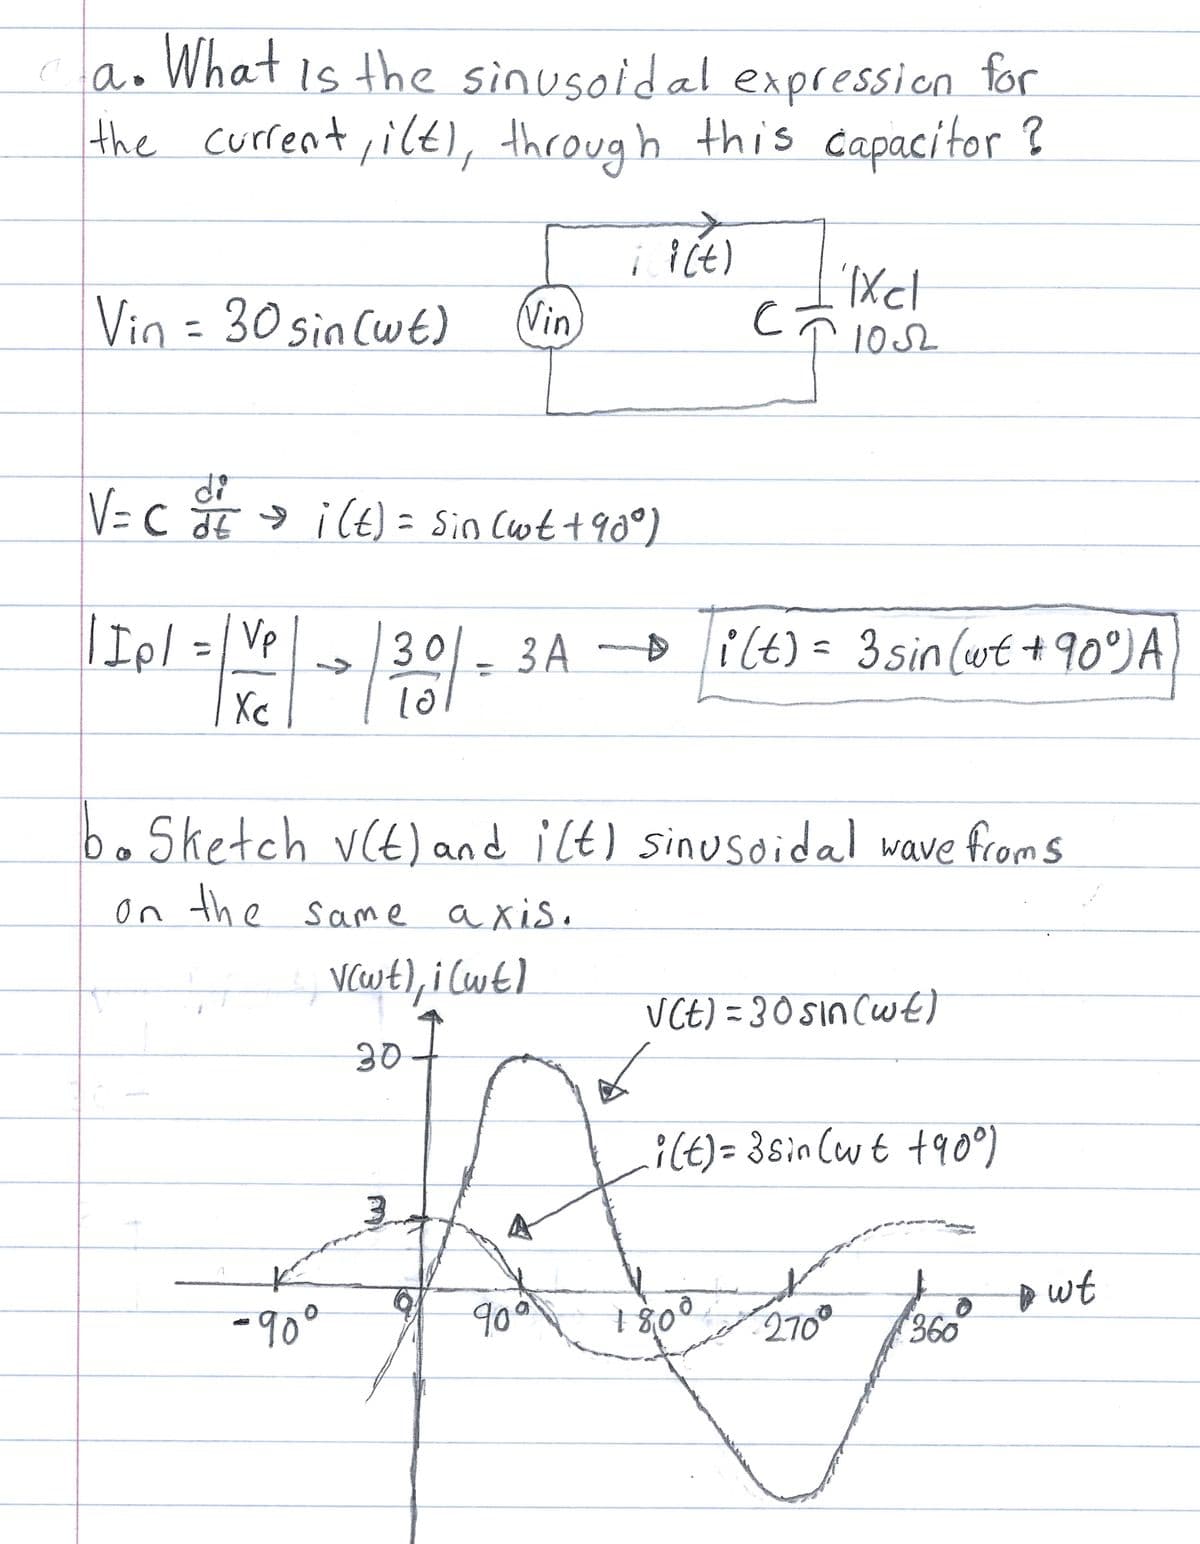 a. What is the sinusoidal expression for
the current, i(t), through this capacitor?
i(t)
|Xc|
Vin = 30 sin(wt) Vin C 10Ω
V = C di/dt → i(t) = sin(wt + 90°)
|Ip| = |Vp/Xc| → |30/10| = 3A → i(t) = 3 sin(wt + 90°) A
b. Sketch v(t) and i(t) sinusoidal wavefroms
on the same axis.
v(wt), i(wt)
v(t) = 30 sin(wt)
30
i(t) = 3 sin(wt + 90°)
3
wt
-90° 0 90° 180° 270° 360°